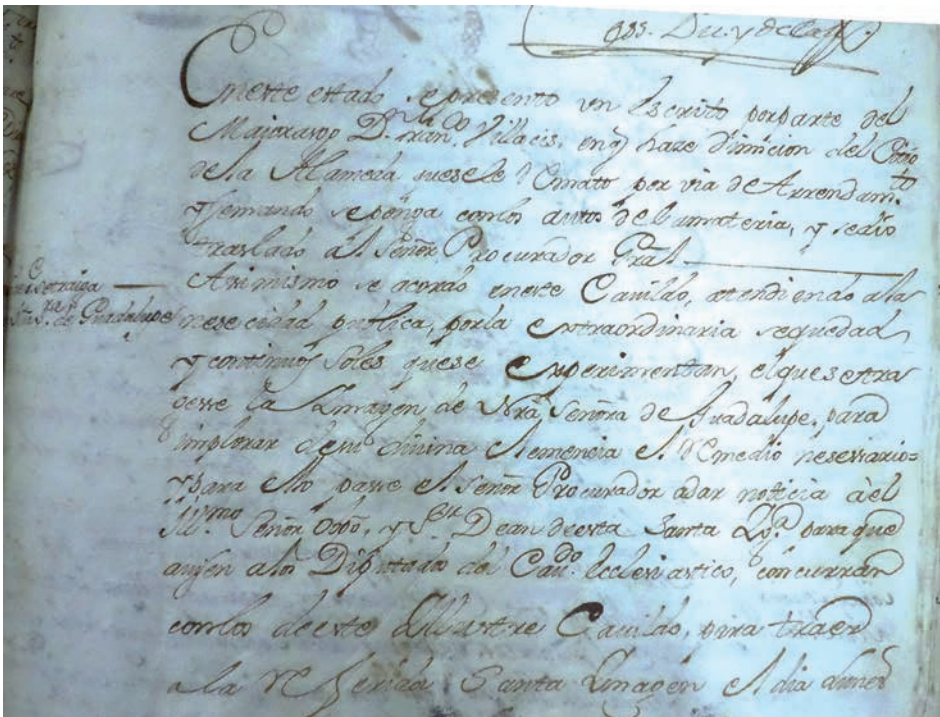 En este estado se presento un Escrito por parte del
Maiorasgo D.n Fran.co Villacis, en q haze dimicion del
de la Alameda, por via de Arrendam.to
y se mando se ponga con los autos de la materia, y se dio
traslado al Señor Procurador Gral
se traiga
Nra S.ra de Guadalupe
Asimismo se acordo en este Cavildo, atendiendo a la
nesecidad publica, por la extraordinaria sequedad
y continuos soles que se experimentan, el que se tra
gesse la Imagen de Nrã Señora de Guadalupe, para
implorar de su divina clemencia el Remedio nesessario=
y para ello passe el Señor Procurador a dar noticia à el
Ill.mo Señor Obpo, y S.r Dean de esta Santa Igª para que
avisen a los Diputados del Cav.do Ecclesiastico, concurran
con los de este Illustre Cavildo, para traer
a la referida Santa Imagen el dia lunes